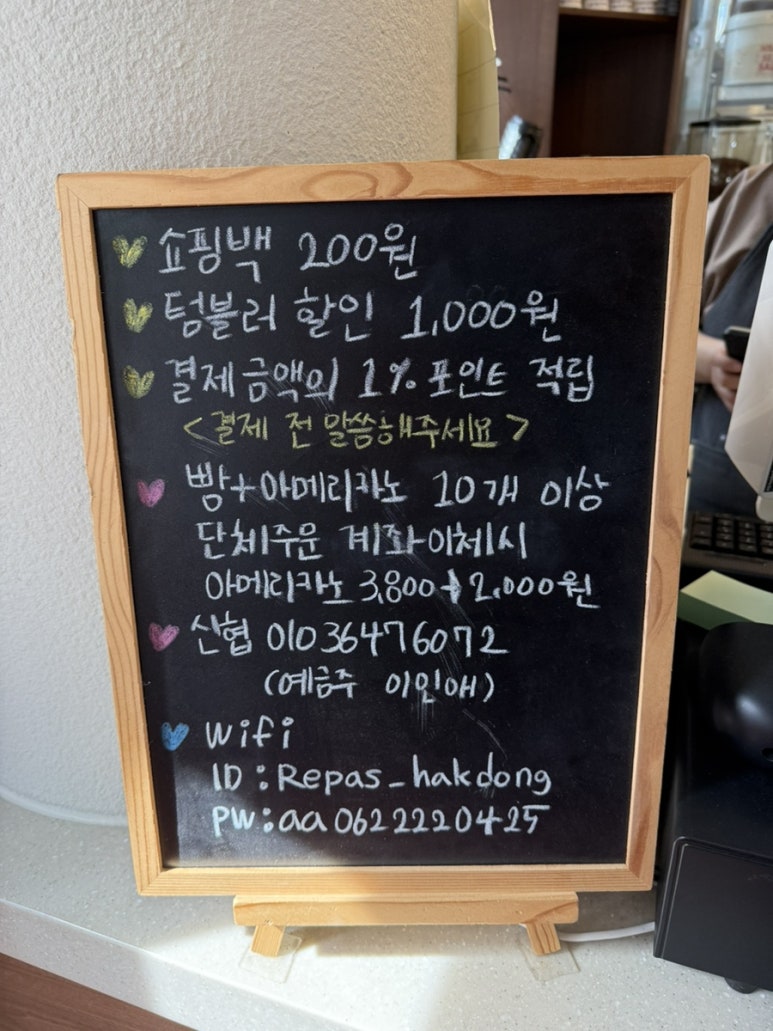 쇼핑백 200원
텀블러 할인 1,000원
결제금액의 1% 포인트 적립
<결제 전 말씀해주세요>
빵+아메리카노 10개 이상
단체주문 계좌이체시
아메리카노 3,800→2,000원
신협 01036476072
(예금주 이인애)
wifi
ID : Repas_hakdong
PW : aa0622220425